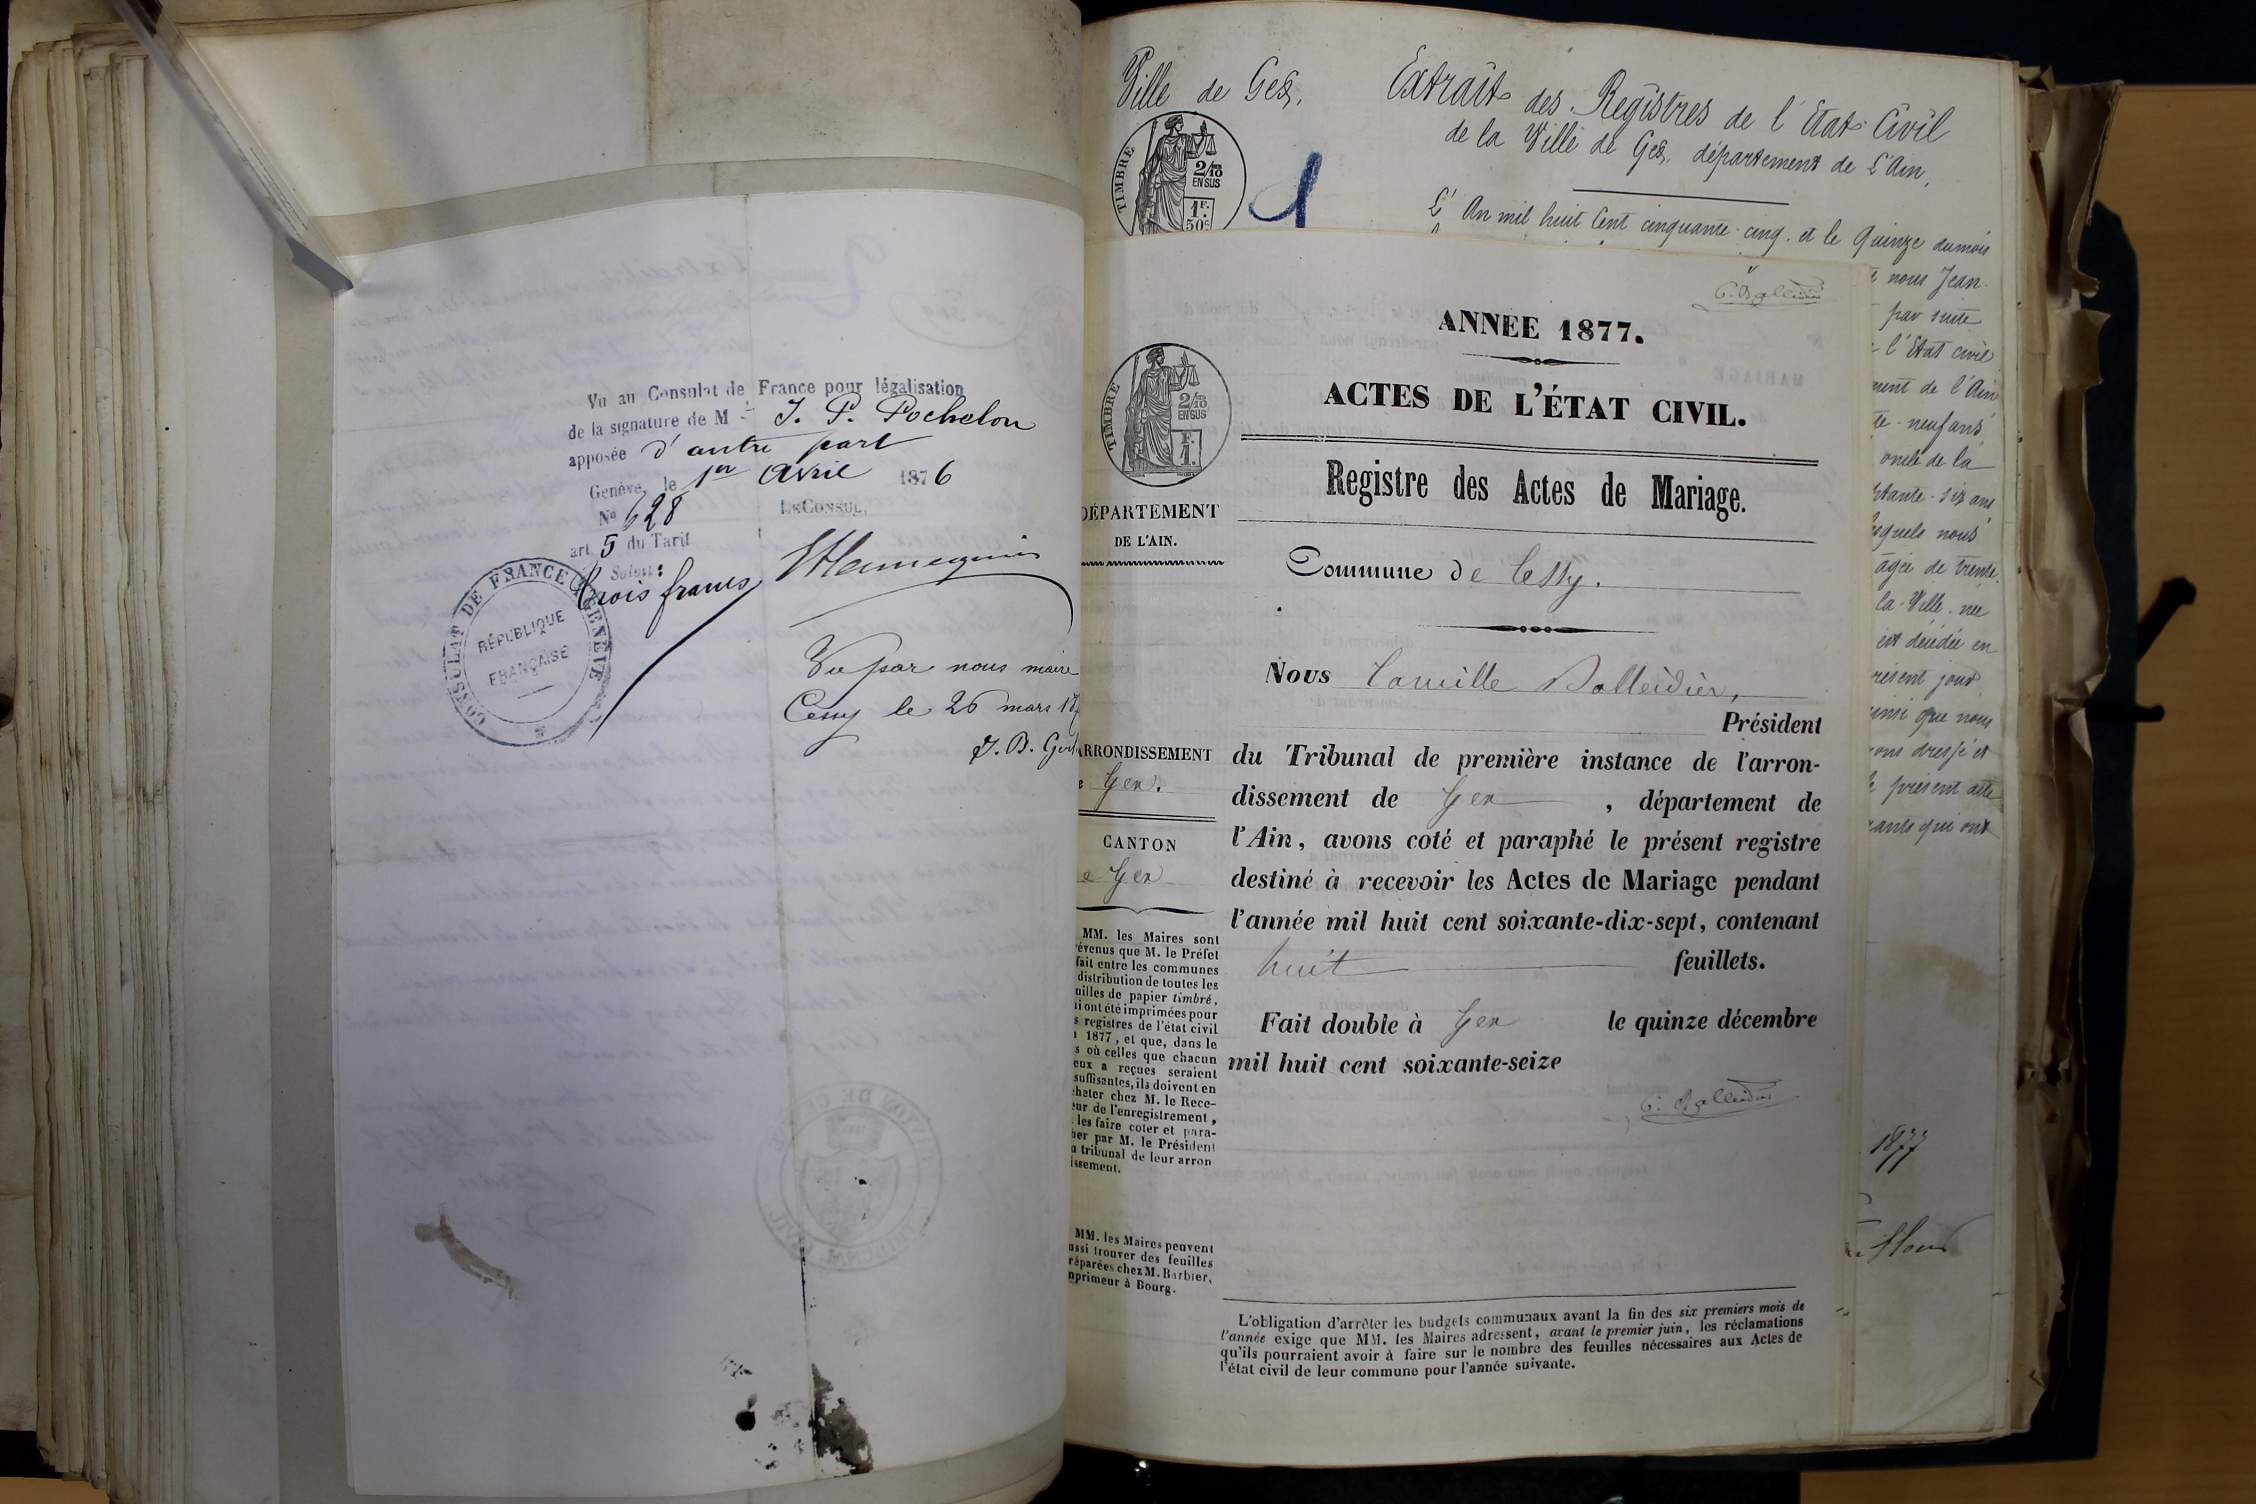 Vu au Consulat de France pour légalisation
de la signature de M J. P. Pochelon
apposée d'autre part
Genève, le 1er Avril 1876
No 628 LE CONSUL,
art. 5 du Tarif
Solut:
trois francs
CONSULAT DE FRANCE GENÈVE
RÉPUBLIQUE
FRANÇAISE
Vu par nous maire
Cessy le 26 mars
J. B.
Ville de Gex.
TIMBRE
2/10
EN SUS
1F.
50c
Extrait des Registres de l'Etat Civil
de la Ville de Gex, département de L'Ain,
L'An mil huit Cent cinquante-cinq, et le Quinze du mois
nous Jean
par suite
l'Etat civil
ment de l'Ain
te-neuf ans,
oncle de la
tante-six ans
lesquels nous
agée de trente
la Ville, née
est décédée en
résent jour
insi que nous
ons dressé et
le présent acte
rants qui ont
1877
ANNÉE 1877.
ACTES DE L'ÉTAT CIVIL.
Registre des Actes de Mariage.
TIMBRE
2/10
EN SUS
F.
1.
DÉPARTEMENT
DE L'AIN.
Commune de Cessy.
Nous Camille Balleidier,
Président
du Tribunal de première instance de l'arron-
dissement de Gex, département de
l'Ain, avons coté et paraphé le présent registre
destiné à recevoir les Actes de Mariage pendant
l'année mil huit cent soixante-dix-sept, contenant
huit feuillets.
Fait double à Gex le quinze décembre
mil huit cent soixante-seize
C. Balleidier
ARRONDISSEMENT
e Gex.
CANTON
e Gex
MM. les Maires sont
révenus que M. le Préfet
fait entre les communes
distribution de toutes les
uilles de papier timbré,
ui ont été imprimées pour
s registres de l'état civil
n 1877, et que, dans le
s où celles que chacun
eux a reçues seraient
suffisantes, ils doivent en
cheter chez M. le Rece-
eur de l'enregistrement,
les faire coter et para-
her par M. le Président
u tribunal de leur arron
issement.
MM. les Maires peuvent
ussi trouver des feuilles
réparées chez M. Barbier,
mprimeur à Bourg.
L'obligation d'arrêter les budgets communaux avant la fin des six premiers mois de
l'année exige que MM. les Maires adressent, avant le premier juin, les réclamations
qu'ils pourraient avoir à faire sur le nombre des feuilles nécessaires aux Actes de
l'état civil de leur commune pour l'année suivante.